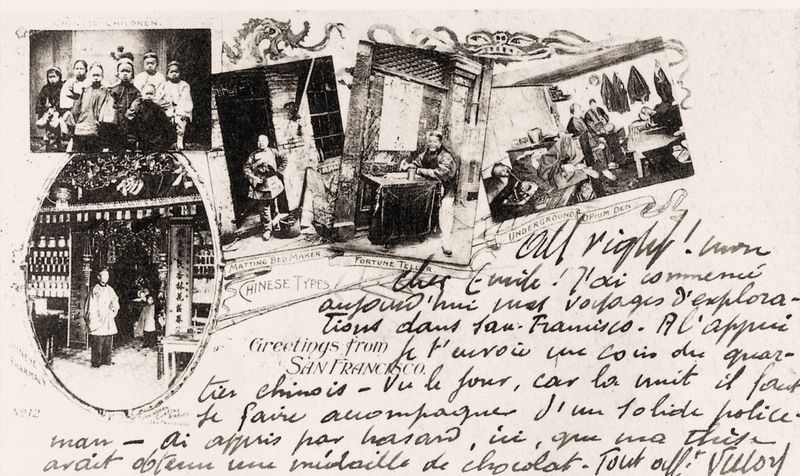 CHINESE CHILDREN.
MATTING BED MAKER
FORTUNE TELLER
UNDERGROUND OPIUM DEN
CHINESE TYPES
CHINESE PHARMACY
Greetings from
SAN FRANCISCO.
No 12
All right! mon
cher Emile! J'ai commencé
aujourd'hui mes voyages d'explora-
tions dans San-Francisco. A l'appui
je t'envoie un coin du quar-
tier chinois - Vu le jour, car la nuit il faut
se faire accompagner d'un solide police-
man - ai appris par hasard, ici, que ma thèse
avait obtenu une médaille de chocolat. Tout aff.t